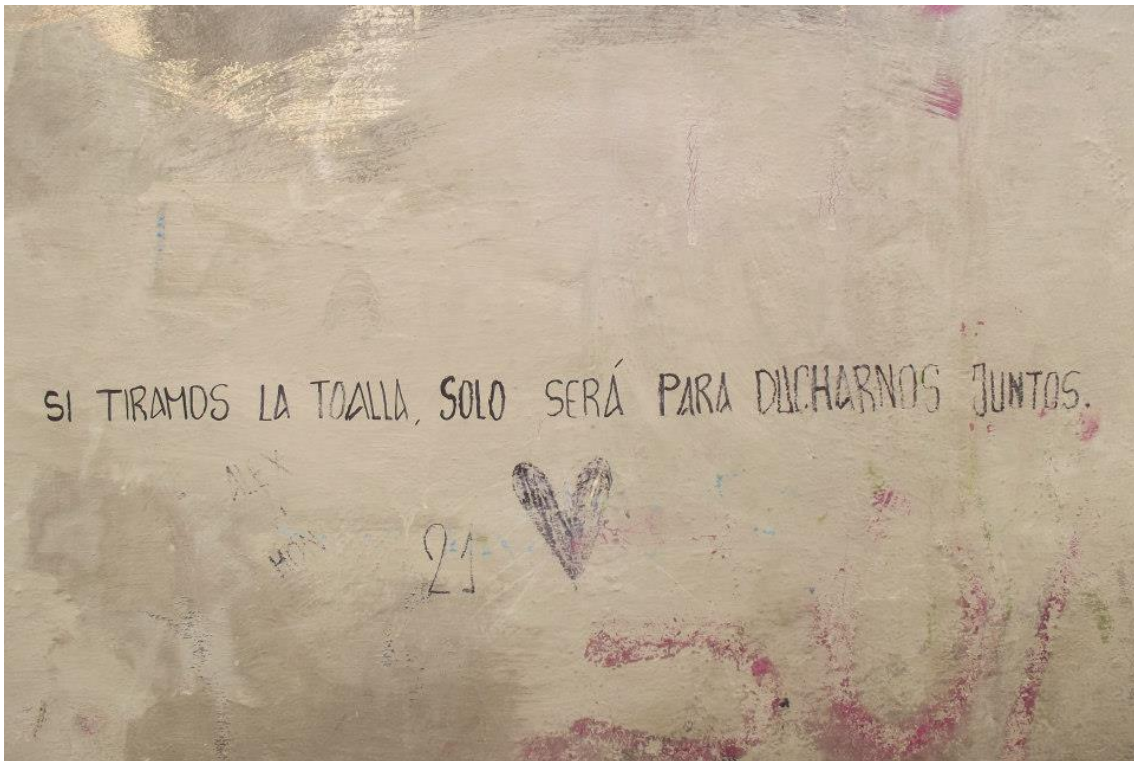 SI TIRAMOS LA TOALLA, SOLO SERÁ PARA DUCHARNOS JUNTOS.
ALEX
21